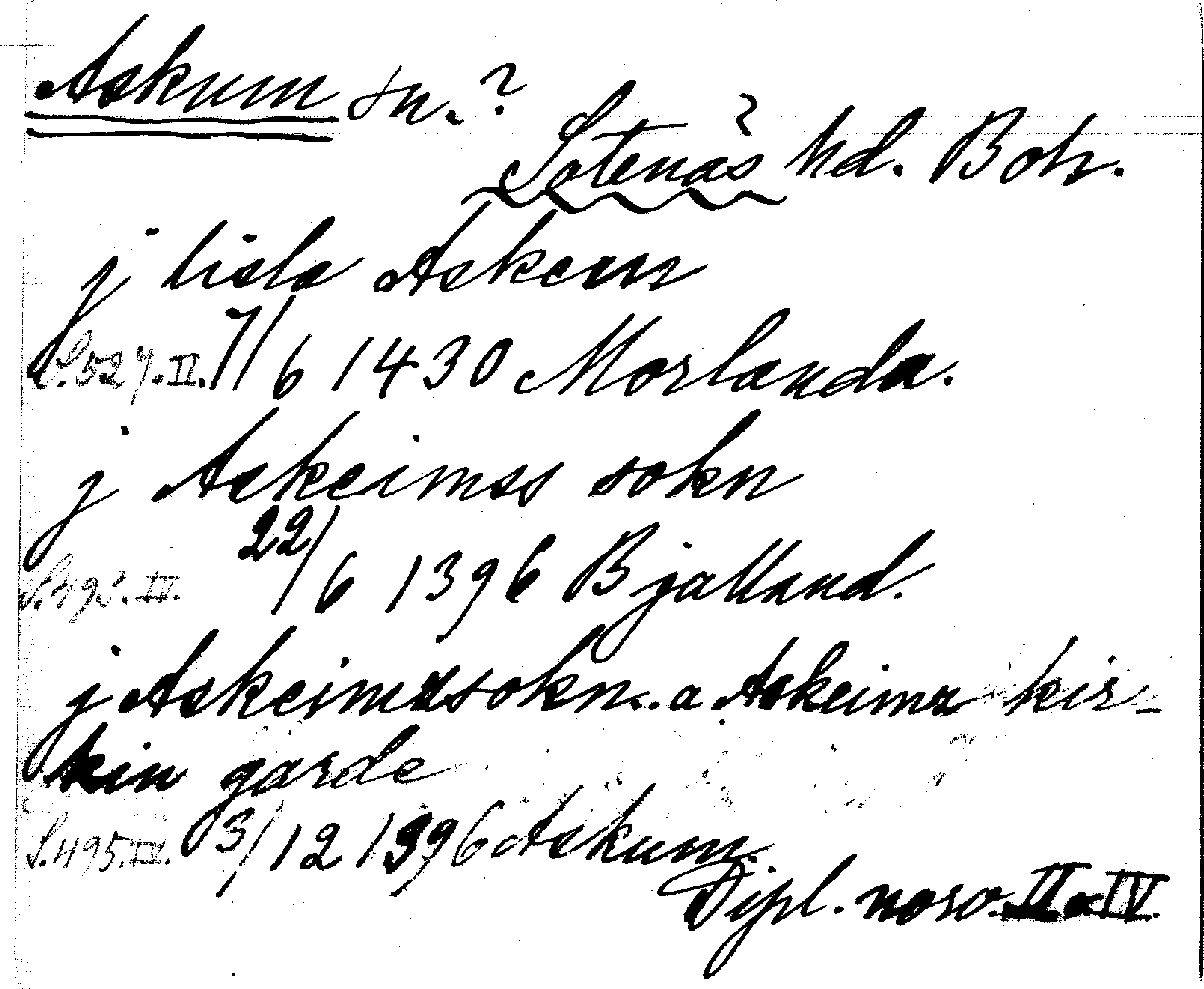 Askum sn.?
Sotenäs hd. Boh.
j lisla Askem
S.527.II. 7/6 1430 Morlanda.
j Askeimss sokn
22/6 1396 Bjalland.
S.495.IV.
j Askeimssokn. a Askeims kir-
kiu garde
S.495.IV. 3/12 1396 Askum.
Dipl. norv. II o IV.